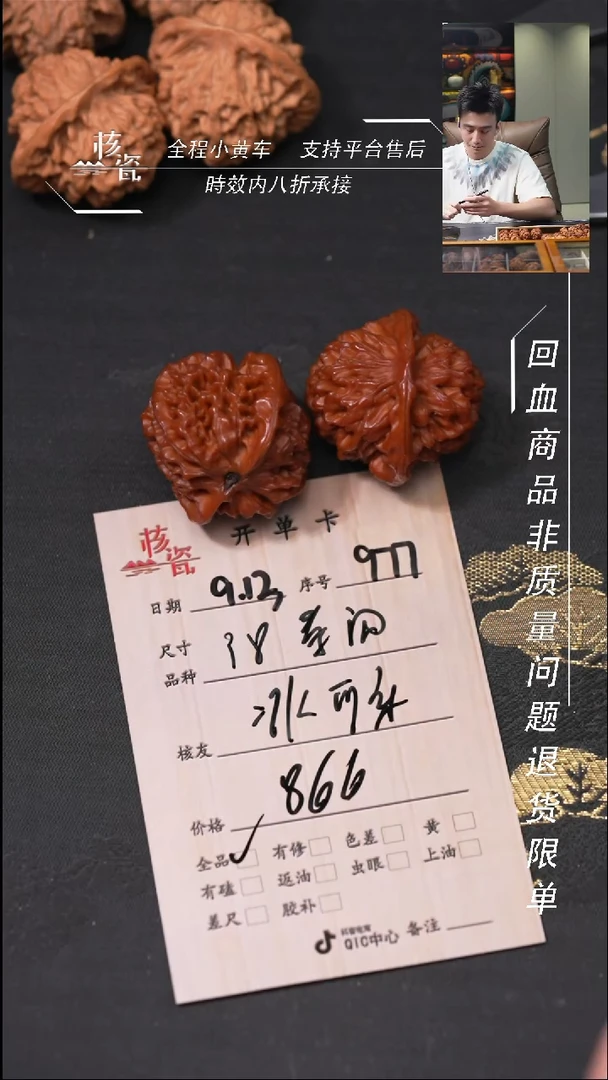 核瓷
全程小黄车 支持平台售后
時效内八折承接
回血商品非质量问题退货限单
核瓷
开单卡
日期 9.12 序号 977
尺寸
品种 38
核友
价格 866
全品 有修 色差 黄
有磕 返油 虫眼 上油
差尺 胶补
抖音电商
QIC中心 备注